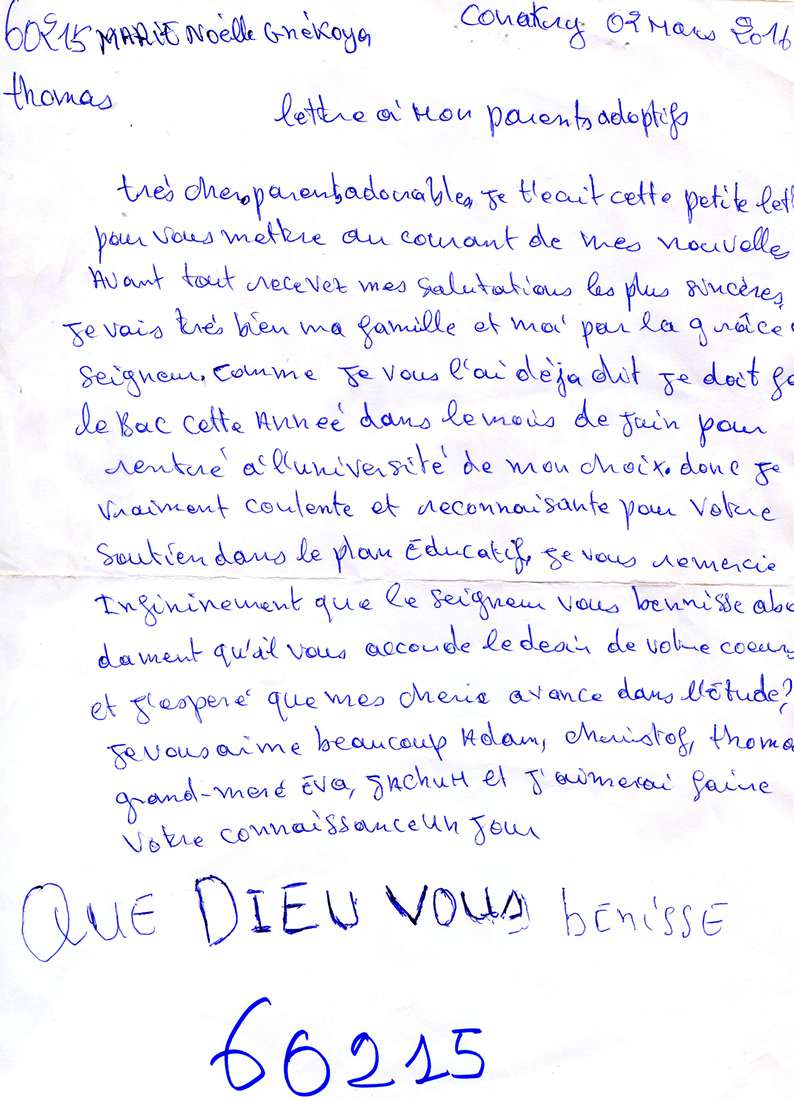 60215 MARIE Noëlle Gnékoya
Conakry 02 Mars 2016
thomas
lettre à Mon parents adoptifs
très chers parents adorables, je t'ecit cette petite lett
pour vous mettre au courant de mes nouvelle
Avant tout recevez mes salutations les plus sincères,
je vais très bien ma famille et moi par la grâce
seigneur. comme je vous l'ai dèja dit je doit fa
le Bac cette Anneé dans le mois de juin pour
rentré à l'université de mon choix. donc je
vraiment contente et reconnaisante pour votre
soutien dans le plan Educatif, je vous remercie
Infininement que le seigneur vous bennisse abo
dament qu'il vous accorde le desir de votre coeur,
et j'esperé que mes cheris avance dans l'étude?
je vous aime beaucoup Adam, christof, thoma
grand-meré Eva, JACHUH et j'aimerai faire
votre connaissance un jour
QUE DIEU VOUS bENiSSE
60215